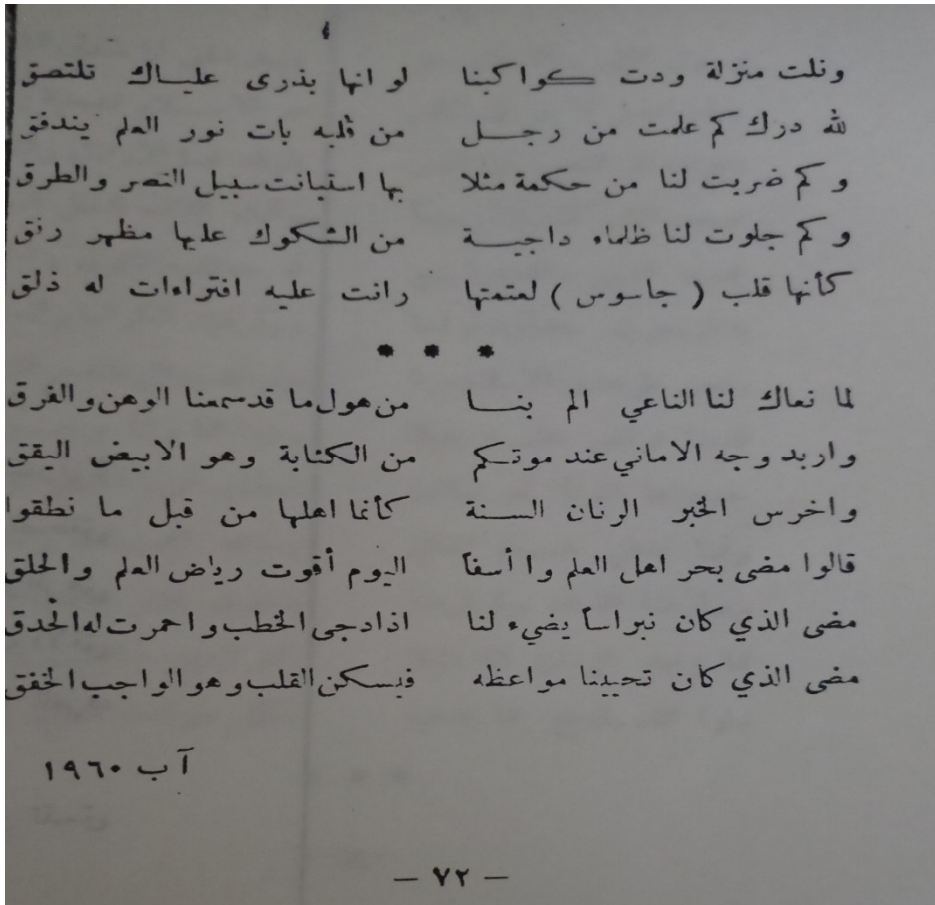 ونلت منزلة ودت كواكبنا لو انها بذرى عليـاك تلتصق
لله درك كم علمت من رجـل من قلبه بات نور العلم يندفق
وكم ضربت لنا من حكمة مثلا بها استبانت سبيل النصر والطرق
وكم جلوت لنا ظلماء داجيـة من الشكوك عليها مظهر رنق
كأنها قلب ( جاسوس ) لعتمتها رانت عليه افتراءات له ذلق
* * *
لما نعاك لنا الناعي الم بنـا من هول ما قد سمعنا الوهن والفرق
واربد وجه الاماني عند موتـكم من الكئابة وهو الابيض اليقق
واخرس الخبر الرنان السـنة كأنما اهلها من قبل ما نطقوا
قالوا مضى بحر اهل العلم وا أسفاً اليوم أقوت رياض العلم والخلق
مضى الذي كان نبراساً يضيء لنا اذا دجى الخطب واحمرت له الحدق
مضى الذي كان تحيينا مواعظه فيسكن القلب وهو الواجب الخفق
آب ١٩٦٠
— ٧٢ —